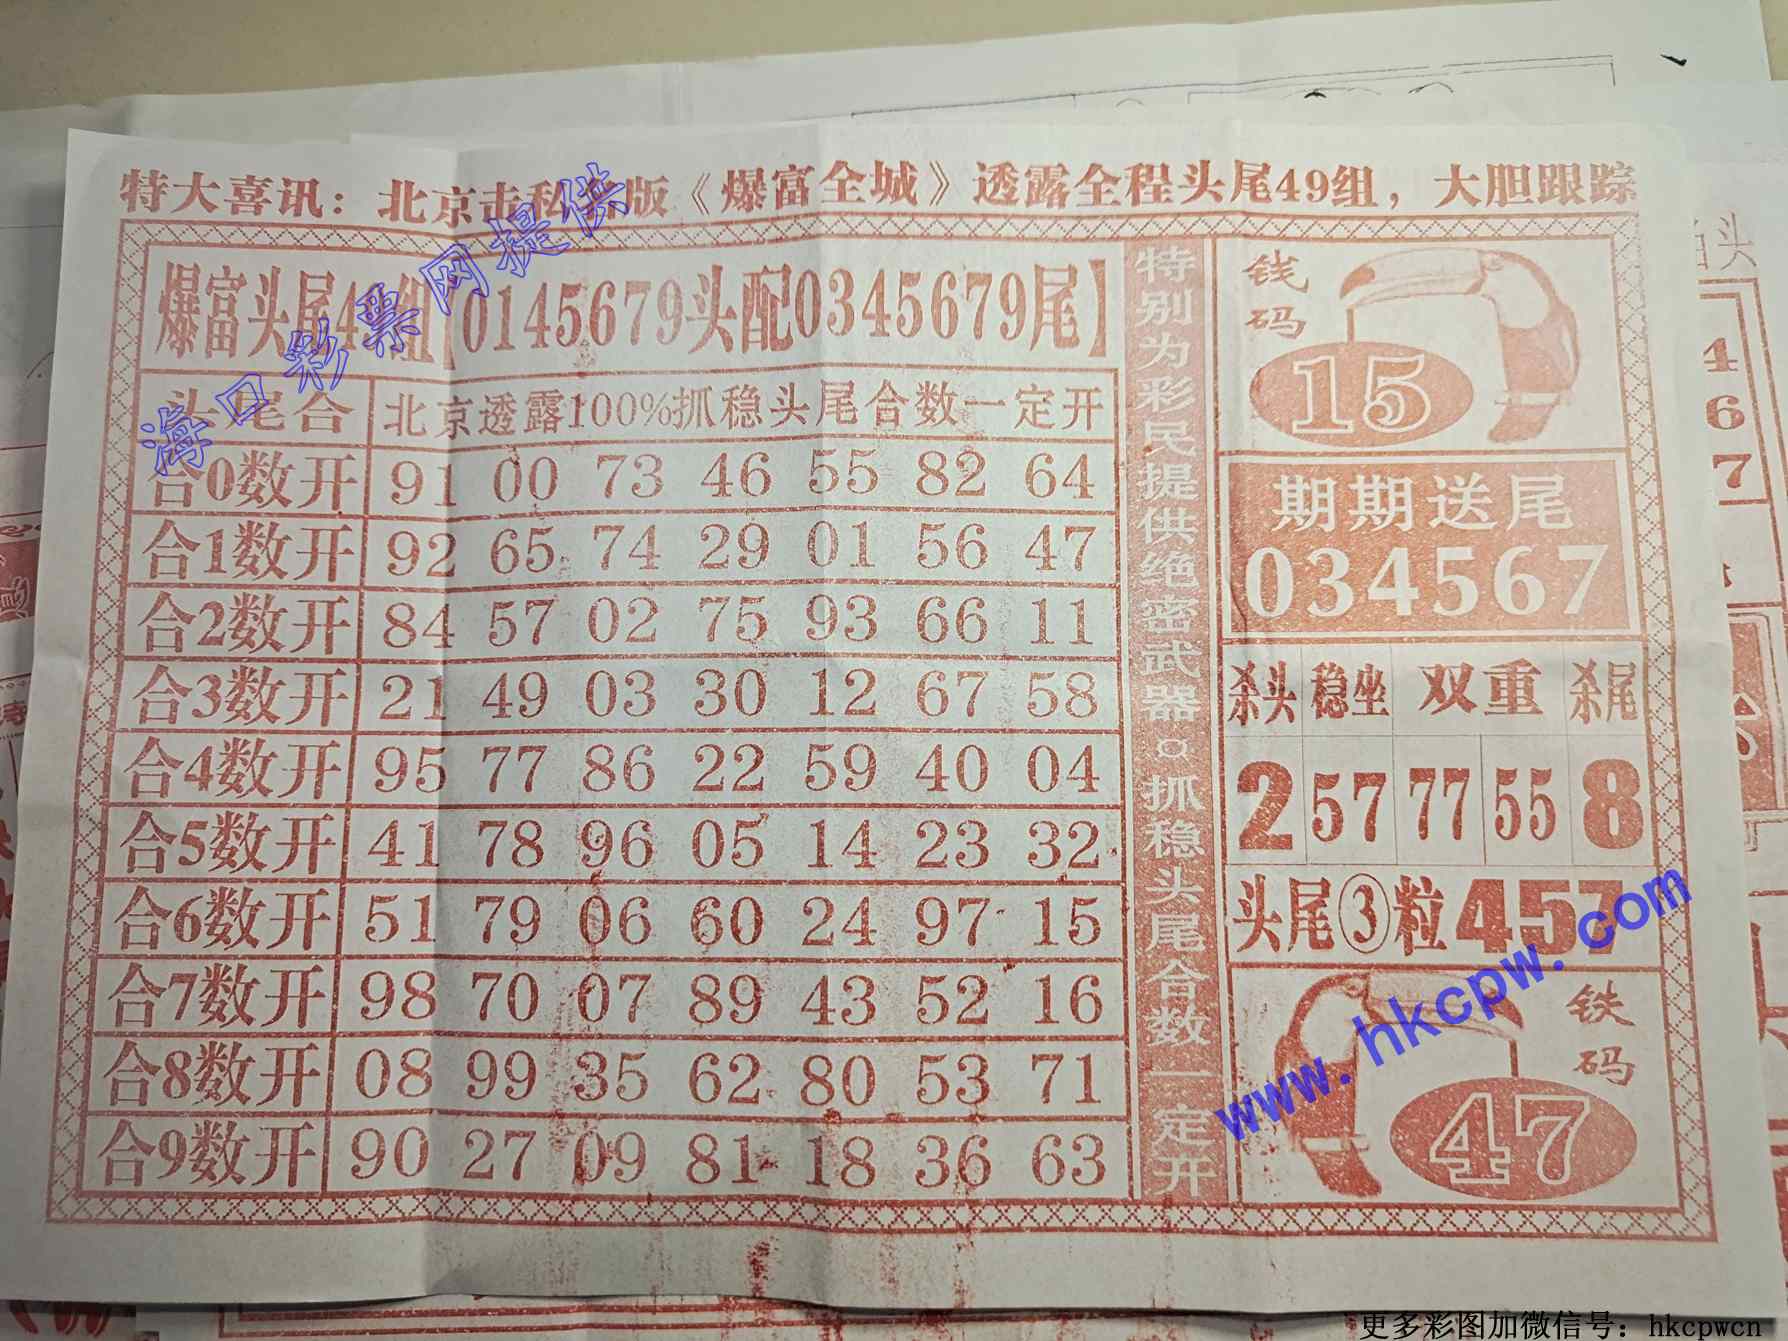 特大喜讯：北京击私  版《爆富全城》透露全程头尾49组，大胆跟踪
爆富头尾4 组【0145679头配0345679尾】
头尾合 北京透露100%抓稳头尾合数一定开
合0数开 91 00 73 46 55 82 64
合1数开 92 65 74 29 01 56 47
合2数开 84 57 02 75 93 66 11
合3数开 21 49 03 30 12 67 58
合4数开 95 77 86 22 59 40 04
合5数开 41 78 96 05 14 23 32
合6数开 51 79 06 60 24 97 15
合7数开 98 70 07 89 43 52 16
合8数开 08 99 35 62 80 53 71
合9数开 90 27 09 81 18 36 63
特别为彩民提供绝密武器&抓稳头尾合数一定开
钱码
15
期期送尾
034567
杀头 稳坐 双重 杀尾
2 57 77 55 8
头尾③粒457
铁码
47
海口彩票网提供
www.hkcpw.com
更多彩图加微信号：hkcpwcn